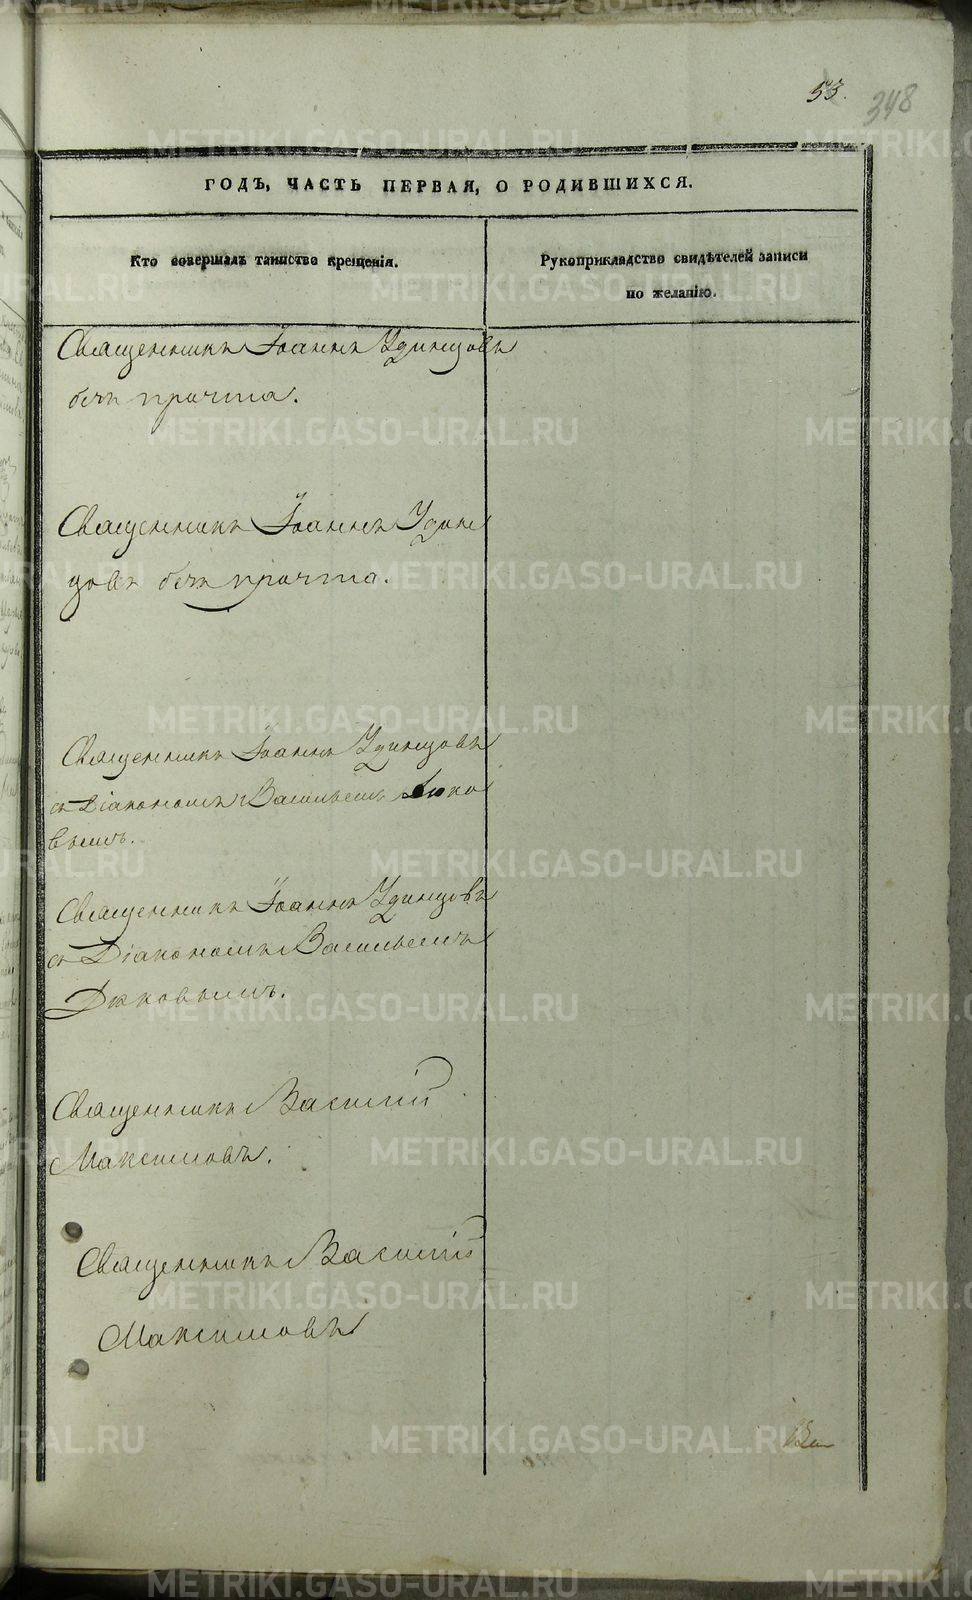 53.
348
ГОДЪ, ЧАСТЬ ПЕРВАЯ, О РОДИВШИХСЯ.
Кто совершалъ таинство крещенія.
Рукоприкладство свидѣтелей записи
по желанію.
Священникъ Іоаннъ Удинцовъ
безъ причта.
Священникъ Іоаннъ Удин
цовъ безъ причта.
Священникъ Іоаннъ Удинцовъ
съ Діакономъ Васильемъ
вымъ.
Священникъ Іоаннъ Удинцовъ
съ Діакономъ Васильемъ
Священникъ Василій
Максимовъ.
Священникъ Василій
Максимовъ
METRIKI.GASO-URAL.RU